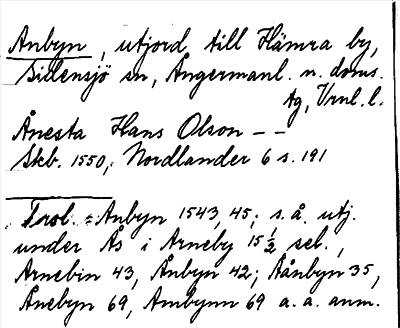 Anbyn, utjord till Hämra by,
Sidensjö sn, Ångermanl. n. doms.
tg, Vrnl. l.
Ånesta Hans Olson – –
Skb. 1550, Nordlander 6 s. 191
Trol. = Anbyn 1543, 45; s. å. utj.
under Ås i Arneby 15 1/2 sel.,
Arnebin 43, Ånbyn 42; Åånbyn 35,
Ånebyn 69, Ambynn 69 a. a. anm.